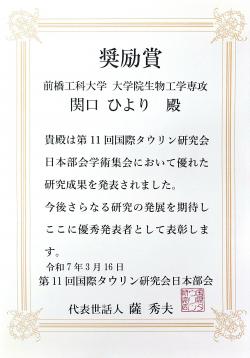 奨励賞
前橋工科大学 大学院生物工学専攻
関口 ひより 殿
貴殿は第11回国際タウリン研究会
日本部会学術集会において優れた
研究成果を発表されました。
今後さらなる研究の発展を期待し
ここに優秀発表者として表彰しま
す。
令和7年3月16日
第11回国際タウリン研究会日本部会
代表世話人 薩 秀夫